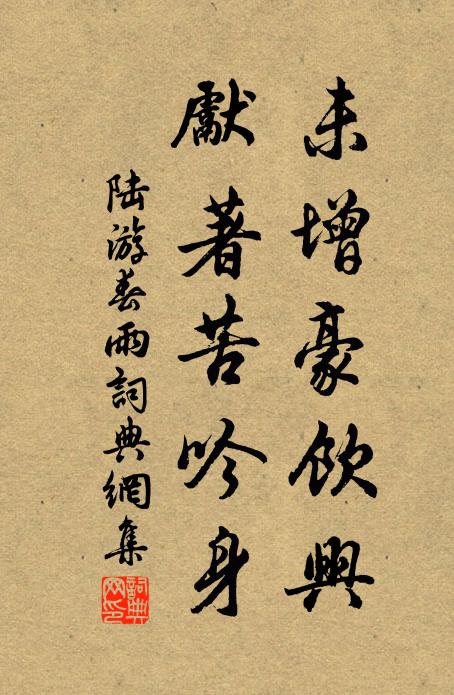 未增豪飲興
獻著苦吟身
陆游春雨詞典網集
詞典网印